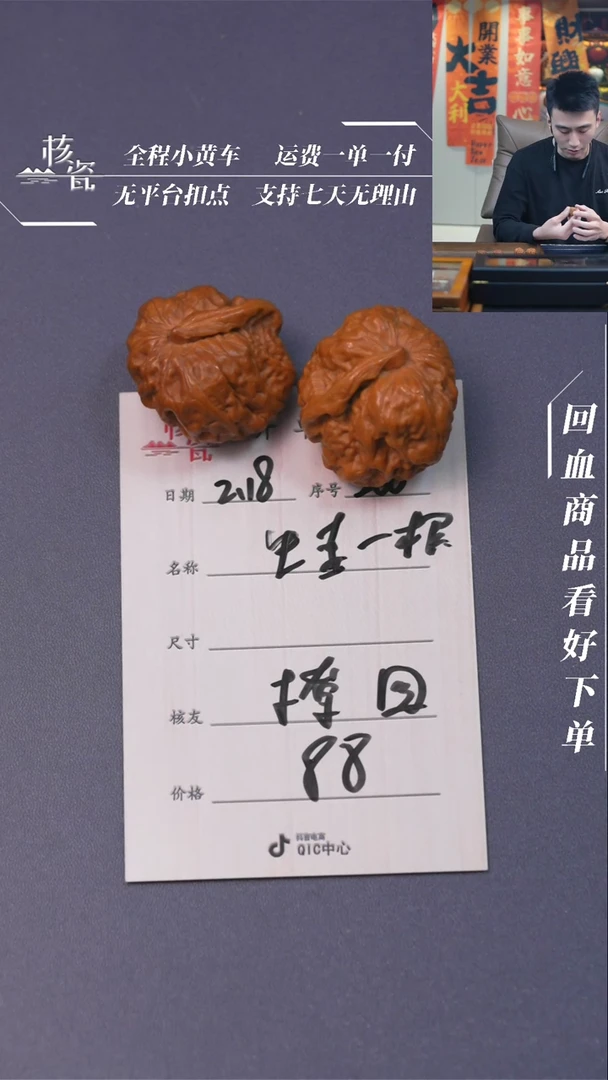 開業
大吉
大利
事事如意
心
财
興
核瓷
全程小黄车 运费一单一付
无平台扣点 支持七天无理由
回血商品看好下单
核
瓷
日期 2.18 序号
名称
尺寸
核友 撩回
价格 88
抖音电商
QIC中心